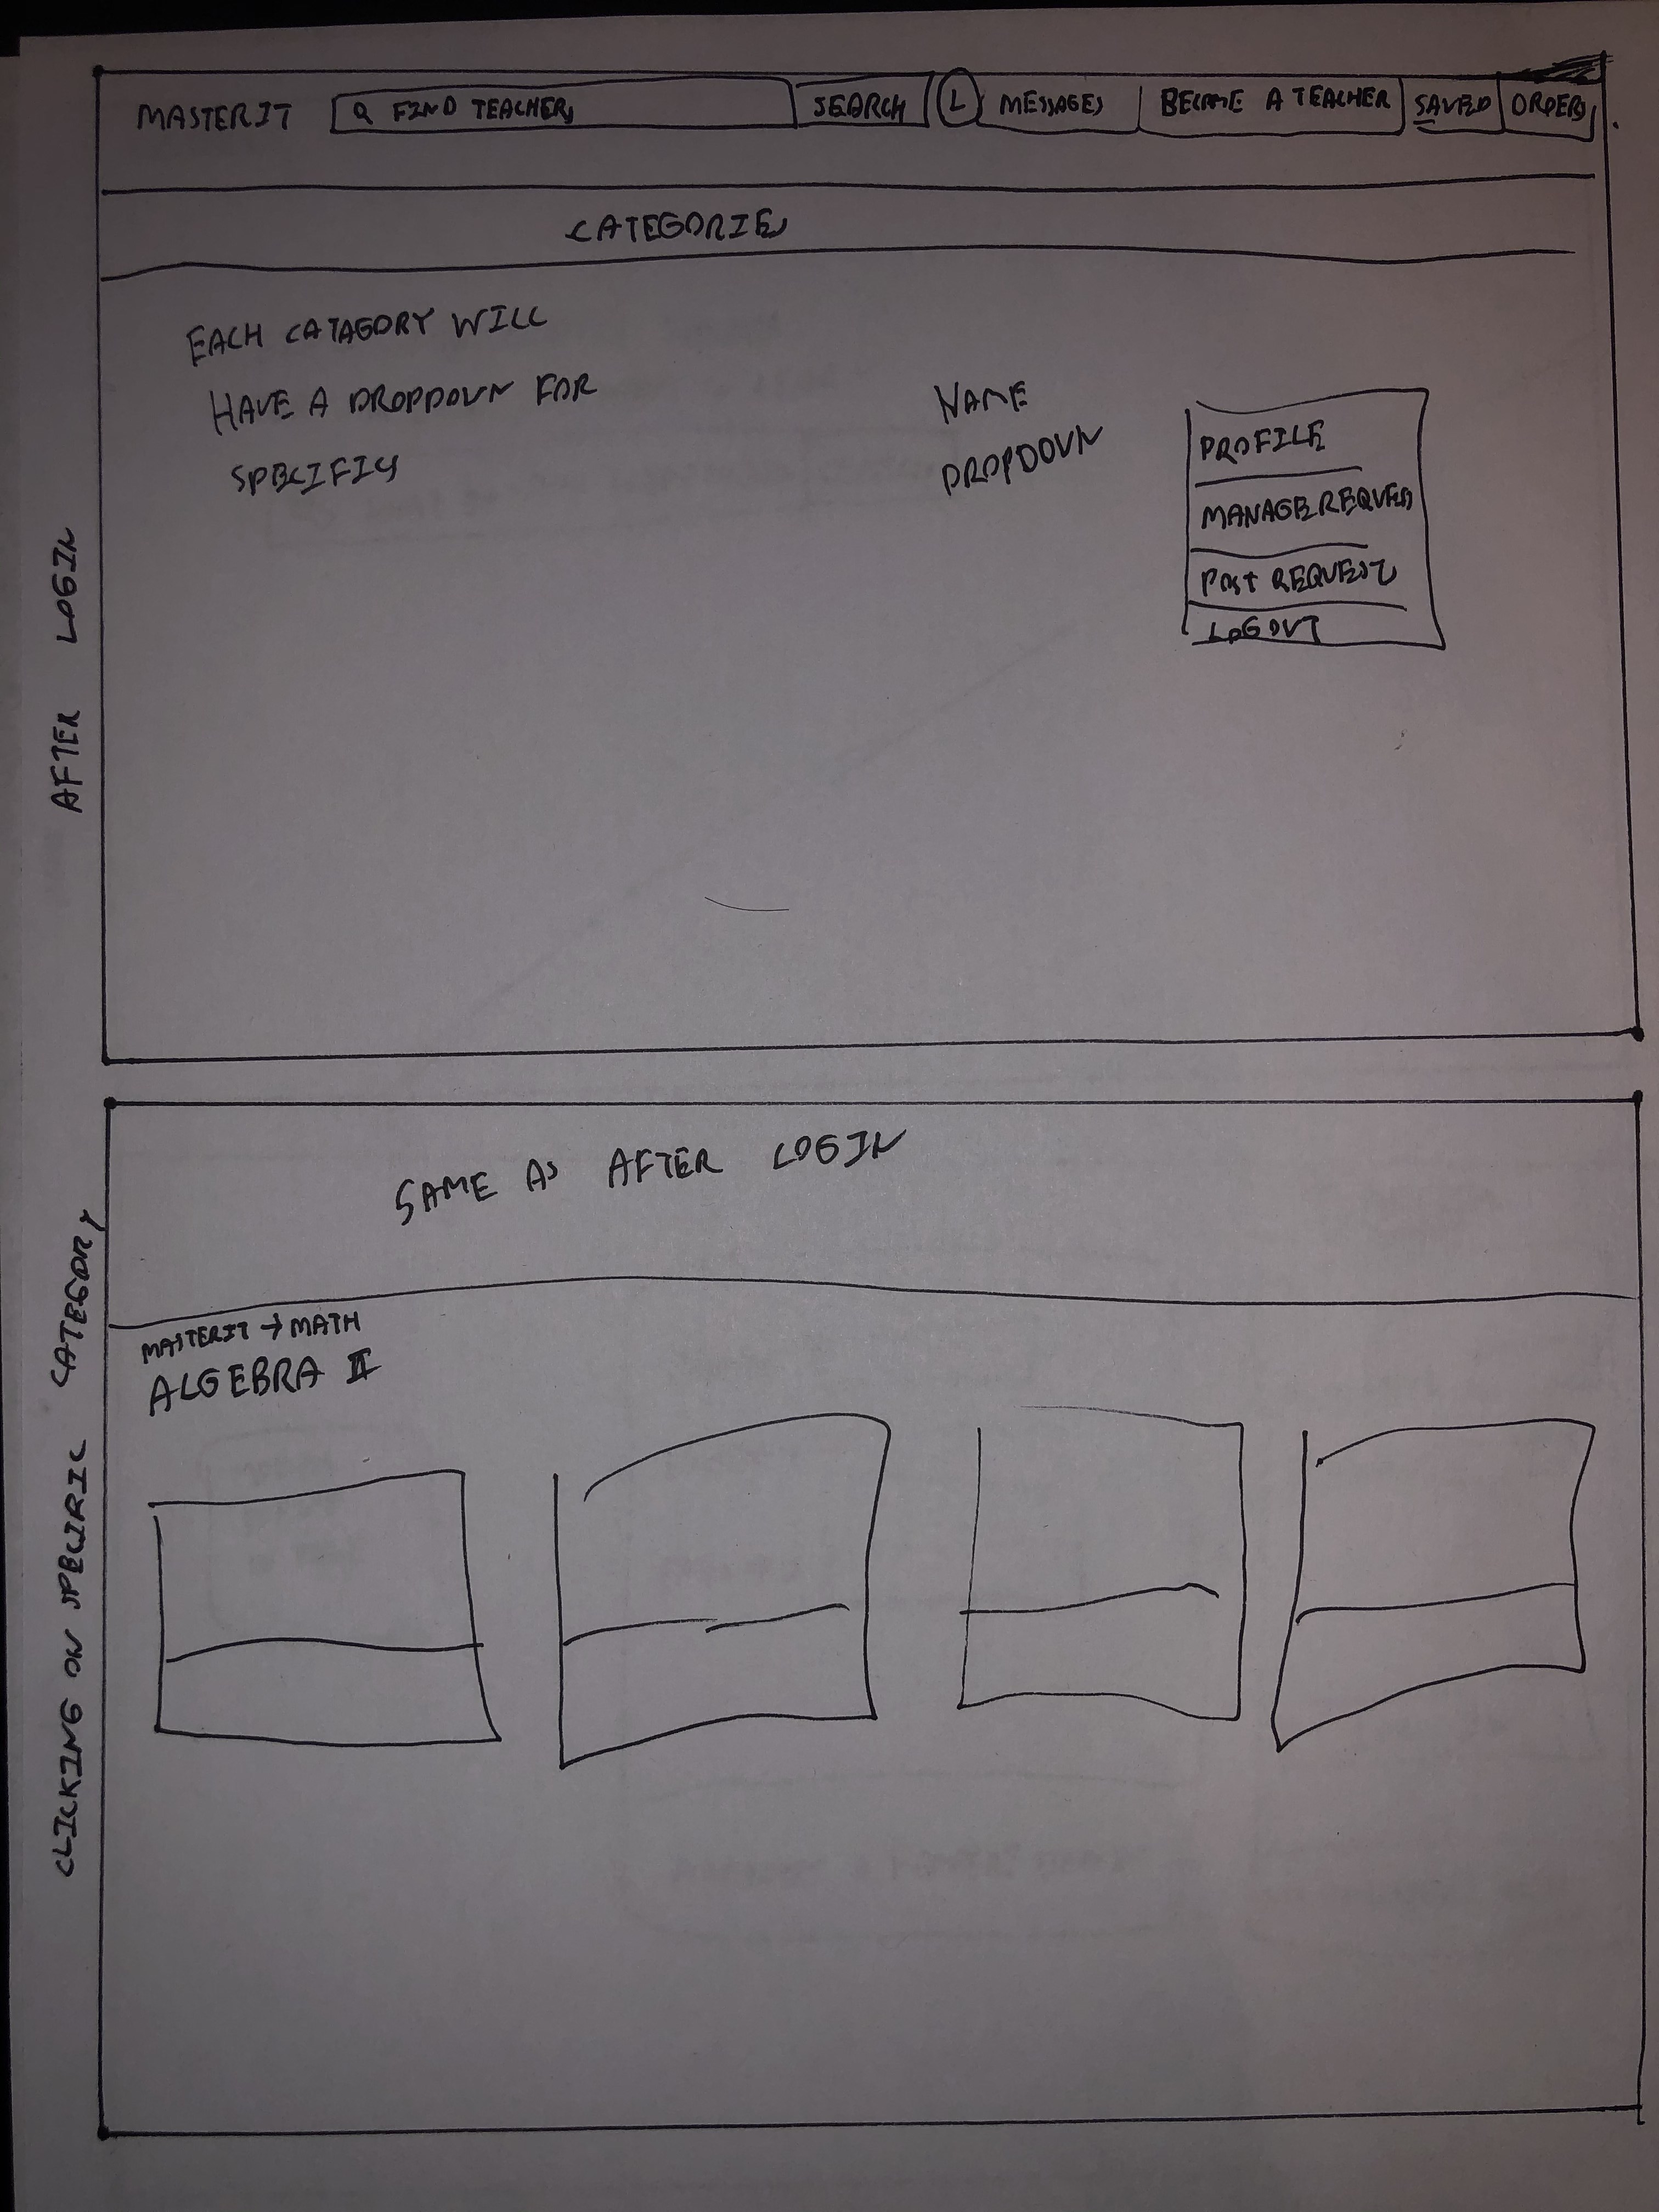 AFTER LOGIN
MASTERIT Q FIND TEACHERS SEARCH L MESSAGES BECOME A TEACHER SAVED ORDERS
CATEGORIES
EACH CATAGORY WILL
HAVE A DROPDOWN FOR
SPECIFICS
NAME
DROPDOWN
PROFILE
MANAGE REQUEST
POST REQUEST
LOGOUT
CLICKING ON SPECIFIC CATEGORY
SAME AS AFTER LOGIN
MASTERIT → MATH
ALGEBRA II